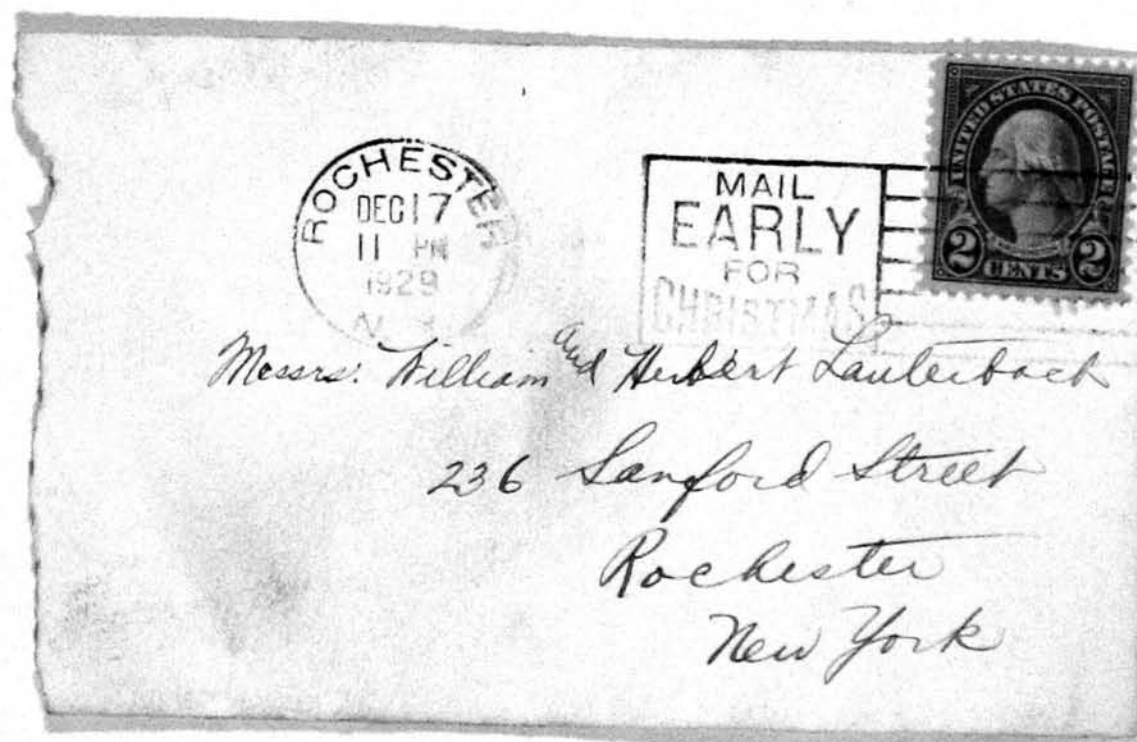 ROCHESTER
DEC 17
11 PM
1929
N. Y.
MAIL
EARLY
FOR
CHRISTMAS
UNITED STATES POSTAGE
2 CENTS 2
Messrs. William and Herbert Lauterbach
236 Sanford Street
Rochester
New York